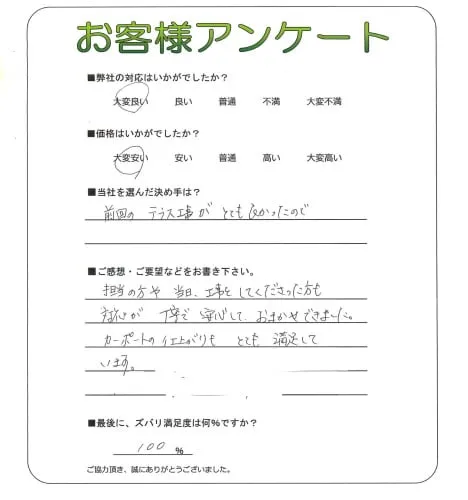 お客様アンケート
■弊社の対応はいかがでしたか？
大変良い 良い 普通 不満 大変不満
■価格はいかがでしたか？
大変安い 安い 普通 高い 大変高い
■当社を選んだ決め手は？
前回の テラス工事が とても良かったので
■ご感想・ご要望などをお書き下さい。
担当の方や 当日、工事をしてくださった方も
対応が 丁寧で 安心して、おまかせできました。
カーポートの仕上がりも とても 満足して
います。
■最後に、ズバリ満足度は何%ですか？
100 %
ご協力頂き、誠にありがとうございました。